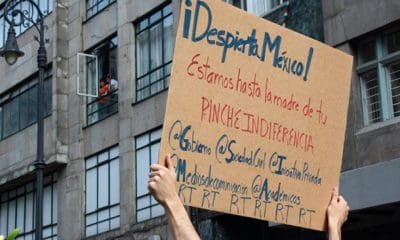 ¡Despierta México!
Estamos hasta la madre de tu
PINCHE INDIFERENCIA
@Gobierno @Sociedad Civil @Iniciativa Privada
@Medios de comunicación @Académicos
RT RT RT RT RT RT RT